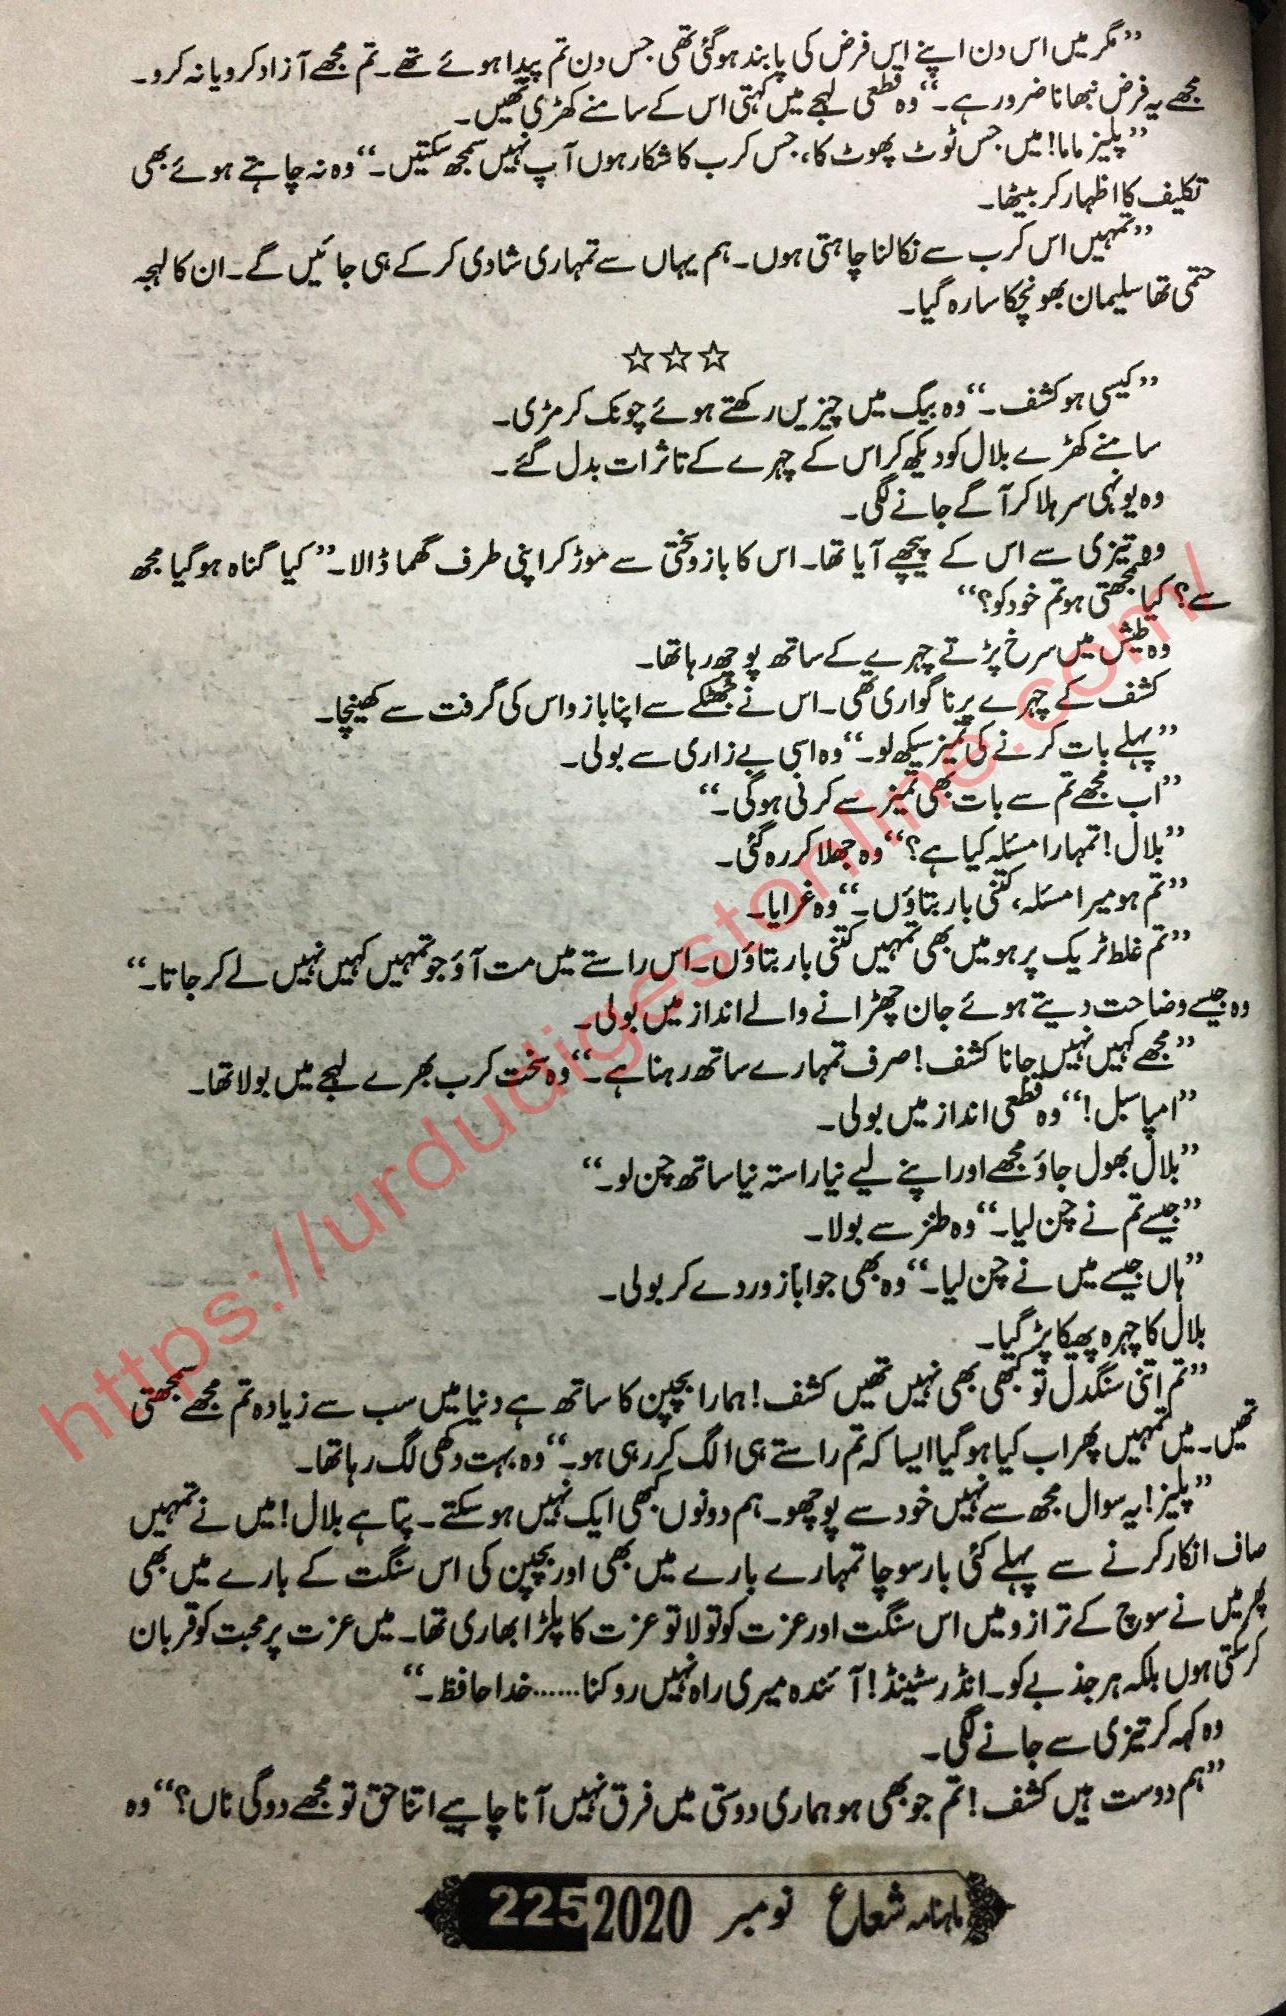 ”مگر میں اس دن اپنے اس فرض کی پابند ہو گئی تھی جس دن تم پیدا ہوئے تھے۔ تم مجھے آزاد کرو یا نہ کرو۔
مجھے یہ فرض نبھانا ضرور ہے۔“ وہ قطعی لہجے میں کہتی اس کے سامنے کھڑی تھیں۔
”پلیز ماما! میں جس ٹوٹ پھوٹ کا، جس کرب کا شکار ہوں آپ نہیں سمجھ سکتیں۔“ وہ نہ چاہتے ہوئے بھی
تکلیف کا اظہار کر بیٹھا۔
”تمہیں اس کرب سے نکالنا چاہتی ہوں۔ ہم یہاں سے تمہاری شادی کر کے ہی جائیں گے۔ ان کا لہجہ
حتمی تھا سلیمان بھونچکا سا رہ گیا۔
☆☆☆
”کیسی ہو کشف۔“ وہ بیگ میں چیزیں رکھتے ہوئے چونک کر مڑی۔
سامنے کھڑے بلال کو دیکھ کر اس کے چہرے کے تاثرات بدل گئے۔
وہ یونہی سر ہلا کر آگے جانے لگی۔
وہ تیزی سے اس کے پیچھے آیا تھا۔ اس کا بازو سختی سے موڑ کر اپنی طرف گھما ڈالا۔ ”کیا گناہ ہو گیا مجھ
سے؟ کیا سمجھتی ہو تم خود کو؟“
وہ طیش میں سرخ پڑتے چہرے کے ساتھ پوچھ رہا تھا۔
کشف کے چہرے پر ناگواری تھی۔ اس نے جھٹکے سے اپنا بازو اس کی گرفت سے کھینچا۔
”پہلے بات کرنے کی تمیز سیکھ لو۔“ وہ اسی بے زاری سے بولی۔
”اب مجھے تم سے بات بھی تمیز سے کرنی ہو گی۔“
”بلال! تمہارا مسئلہ کیا ہے؟“ وہ جھلا کر رہ گئی۔
”تم ہو میرا مسئلہ، کتنی بار بتاؤں۔“ وہ غرایا۔
”تم غلط ٹریک پر ہو میں بھی تمہیں کتنی بار بتاؤں۔ اس راستے میں مت آؤ جو تمہیں کہیں نہیں لے کر جاتا۔“
وہ جیسے وضاحت دیتے ہوئے جان چھڑانے والے انداز میں بولی۔
”مجھے کہیں نہیں جانا کشف! صرف تمہارے ساتھ رہنا ہے۔“ وہ سخت کرب بھرے لہجے میں بولا تھا۔
”امپاسبل!“ وہ قطعی انداز میں بولی۔
”بلال بھول جاؤ مجھے اور اپنے لیے نیا راستہ نیا ساتھ چن لو۔“
”جیسے تم نے چن لیا۔“ وہ طنز سے بولا۔
”ہاں جیسے میں نے چن لیا۔“ وہ بھی جواباً زور دے کر بولی۔
بلال کا چہرہ پھیکا پڑ گیا۔
”تم اتنی سنگدل تو کبھی بھی نہیں تھیں کشف! ہمارا بچپن کا ساتھ ہے دنیا میں سب سے زیادہ تم مجھے سمجھتی
تھیں۔ میں تمہیں پھر اب کیا ہو گیا ایسا کہ تم راستے ہی الگ کر رہی ہو۔“ وہ بہت دکھی لگ رہا تھا۔
”پلیز! یہ سوال مجھ سے نہیں خود سے پوچھو۔ ہم دونوں کبھی ایک نہیں ہو سکتے۔ پتا ہے بلال! میں نے تمہیں
صاف انکار کرنے سے پہلے کئی بار سوچا تمہارے بارے میں بھی اور بچپن کی اس سنگت کے بارے میں بھی
پھر میں نے سوچ کے ترازو میں اس سنگت اور عزت کو تولا تو عزت کا پلڑا بھاری تھا۔ میں عزت پر محبت کو قربان
کر سکتی ہوں بلکہ ہر جذبے کو۔ انڈرسٹینڈ! آئندہ میری راہ نہیں روکنا...... خدا حافظ۔“
وہ کہہ کر تیزی سے جانے لگی۔
”ہم دوست ہیں کشف! تم جو بھی ہو ہماری دوستی میں فرق نہیں آنا چاہیے اتنا حق تو مجھے دو گی ناں؟“ وہ
ماہنامہ شعاع نومبر 2020 225
https://urdudigestonline.com/